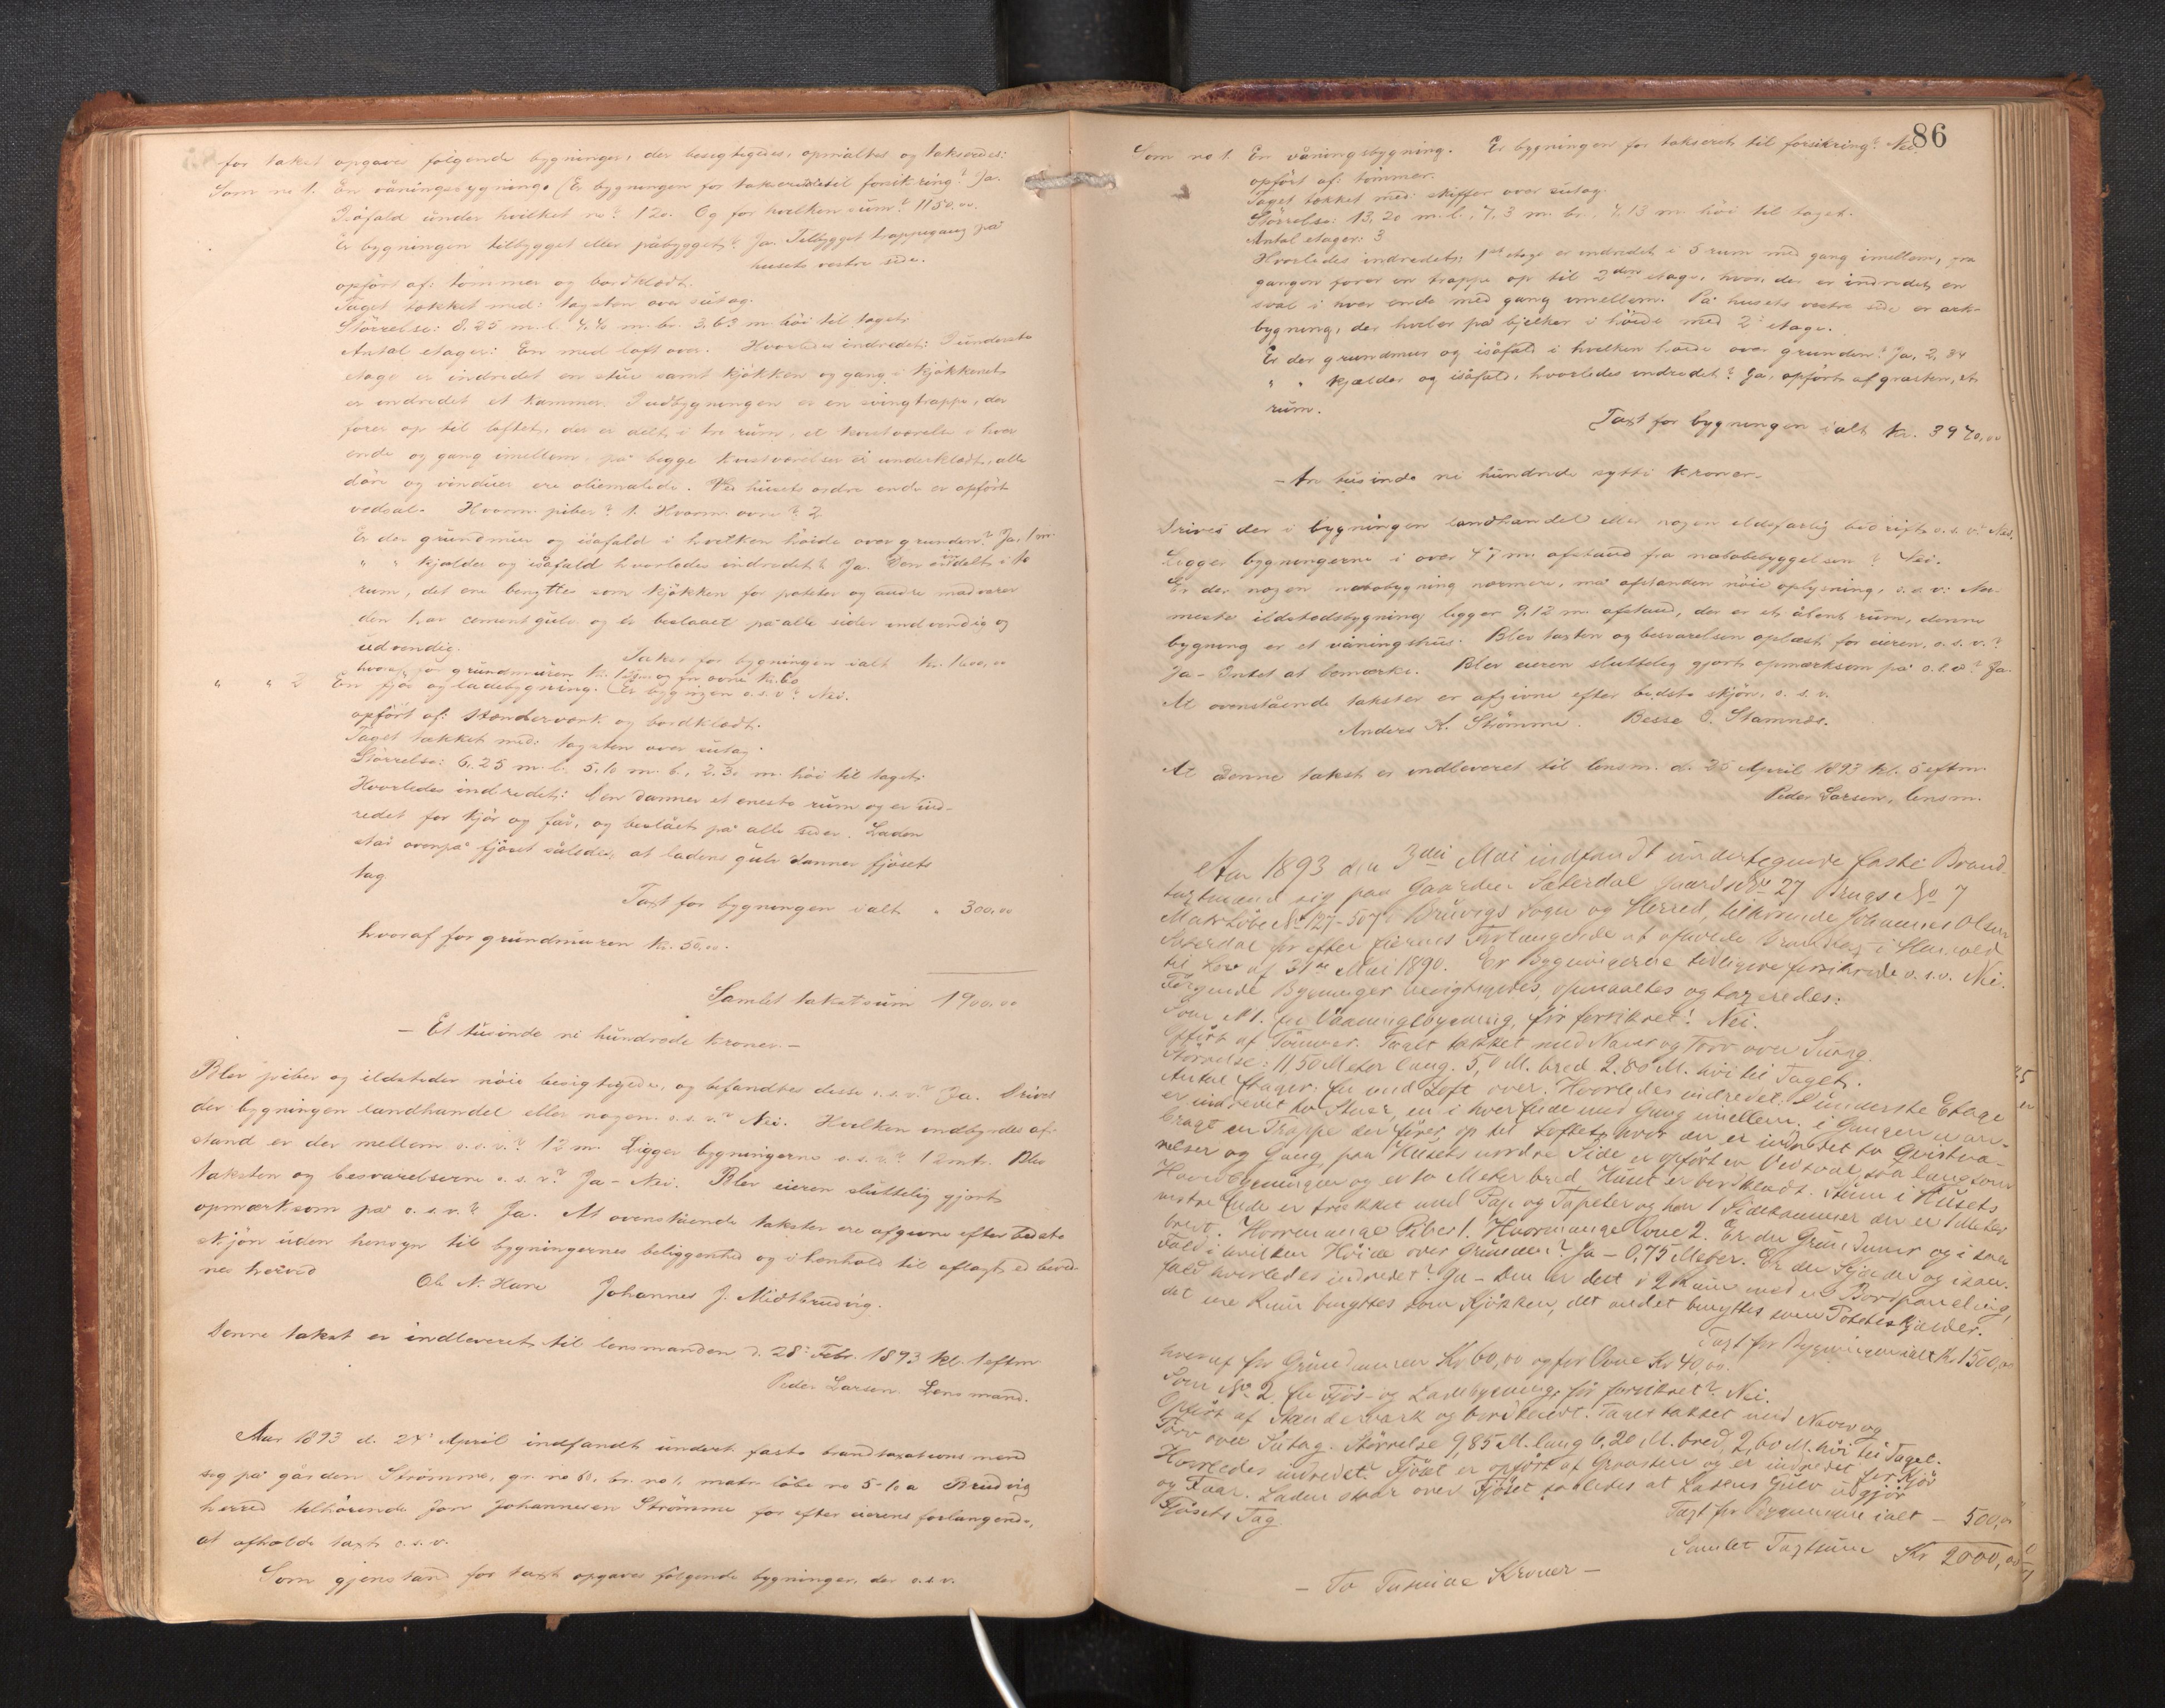 for takst opgaves følgende bygninger, der besigtigedes, opmåltes og takseredes:
Som no 1. En våningsbygning. (Er bygningen før takseret til forsikring? Ja.
Isåfald under hvilket no? 120. Og for hvilken sum? 1150,00.
Er bygningen tilbygget eller påbygget? Ja. Tilbygget trappegang på
husets vestre side.
opført af: tømmer og bordklædt.
Taget tækket med: tagsten over sutag.
Størrelse: 8,25 m. l. 7.40 m. br. 3,63 m. høi til taget.
Antal etager: En med loft over. Hvorledes indredet: I underste
etage er indredet en stue samt kjøkken og gang. i kjøkkenet
er indredet et kammer. I udbygningen er en svingtrappe, der
fører op til loftet, der er delt i tre rum, et kvistværelse i hver
ende og gang imellem, på begge kvistværelser er underklædt, alle
døre og vinduer ere oliemalede. Ved husets ende er opført
vedsval. Hvorm. piber? 1. Hvorm. ovne? 2
Er der grundmur og isåfald i hvilken høide over grunden? Ja, 1 m.
" " kjælder og isåfald hvorledes indredet? Ja. Den er inddelt i to
rum, det ene benyttes som kjøkken for poteter og andre madvarer
den har cementgulv og er beslaaet på alle sider indvendig og
udvendig.
Takst for bygningen ialt kr. 1600,00
hvoraf for grundmuren kr. og for ovne kr. 60
" " 2 En fjøs og ladebygning. (Er bygningen o.s.v.? Nei.
opført af: Stænderværk og bordklædt.
Taget tækket med: tagsten over sutag.
Størrelse: 6.25 m. l. 5,10 m. b., 2,30 m. høi til taget.
Hvorledes indredet: Den danner et eneste rum og er ind-
redet for kjør og får, og beslået på alle sider. Laden
står ovenpå fjøset således, at ladens gulv danner fjøsets
tag
Taxt for bygningen ialt " 300,00
hvoraf for grundmuren kr. 50,00.
Samlet takstsum 1900,00
– Et tusinde ni hundrede kroner. –
Blev piber og ildsteder nøie besigtigede, og befandtes disse o.s.v.? Ja. Drives
der bygningen landhandel eller nogen o.s.v.? Nei. Hvilken indbyrdes af-
stand er der mellem o.s.v.? 12 m. Ligger bygningerne o.s.v.? 12 mtr. Blev
taksten og besvarelserne o.s.v.? Ja – Nei. Blev eieren sluttelig gjort
opmærksom på o.s.v.? Ja. At ovenstående takster ere afgivne efter bedste
skjøn uden hensyn til bygningernes beliggenhed og i henhold til aflagt ed bevid-
nes herved
Ole N. Hare Johannes J. Midtbrudvig.
Denne takst er indleveret til lensmanden d. 28: Febr. 1893 kl. 1 eftm.
Peder Larsen. Lensmand.
Aar 1893 d. 24' April indfandt undert. faste brandtaxationsmænd
sig på gården Strømme, gr. no br. no 1. matr. løbe no 5-10 a Brudvig
herred tilhørende Jon Johannesen Strømme for efter eierens forlangende,
at afholde taxt o.s.v.
Som gjenstand for taxt opgaves følgende bygninger, der o.s.v.
86
Som no 1. En våningsbygning. Er bygningen før takseret til forsikring? Nei.
opført af: tømmer.
Taget tækket med: skiffer over sutag.
Størrelse: 13,20 m. l., 7,3 m. br., 7,13 m. høi til taget.
Antal etager: 3
Hvorledes indredet: 1ste etage er indredet i 5 rum med gang imellem, fra
gangen fører en trappe op til 2den etage, hvor der er indredet en
sval i hver ende med gang imellem. På husets vestre side er ark-
bygning, der hviler på bjelker i høide med 2' etage.
Er der grundmur og isåfald i hvilken høide over grunden? Ja, 2,84
" " kjælder og isåfald, hvorledes indredet? Ja, opført af gråsten, et
rum.
Taxt for bygningen ialt kr. 3970,00
– tusinde ni hundrede sytti kroner. –
Drives der i bygningen landhandel eller nogen ildsfarlig bedrift o.s.v.? Nei.
Ligger bygningerne i over 47 m. afstand fra nabobebyggelsen? Nei.
Er der nogen nabobygning nærmere, må afstanden nøie oplysning, o.s.v.: Nær-
meste ildstedsbygning ligger 9,12 m. afstand, der er et åbent rum, denne
bygning er et våningshus. Blev taxten og besvarelsen oplæst for eieren o.s.v.?
Ja – Intet at bemærke. Blev eieren sluttelig gjort opmærksom på o.s.v? Ja.
At ovenstående takster er afgivne efter bedste skjøn, o.s.v.
Anders K. Strømme. Besse O. Stamnes.
At denne takst er indleveret til lensm. d. 25 April 1893 kl. 5 eftm.
Peder Larsen, lensm.
Aar 1893 den 3die Mai indfandt undertegnede faste Brand-
taxtmænd sig paa Gaarden Sæterdal Gaards No 27 Brugs No 7
Matr Løbe No 127-507 i Bruvigs Sogn og Herred, tilhørende Johannes Olsen
Sæterdal for efter Eierens Forlangende at afholde Brandtaxt i Henhold
til Lov af 31te Mai 1890. Er Bygningerne tidligere forsikrede o.s.v. Nei.
Følgende Bygninger besigtigedes, opmaaltes og taxeredes:
Som No 1. En Vaaningsbygning, før forsikret? Nei.
Opført af Tømmer. Taget tækket med Næver og Torv over Sutag.
Størrelse: 11,50 Meter lang. 5,0 M. bred 2.80 M. høi til Taget.
Antal Etager: En med Loft over. Hvorledes indredet: I underste Etage
er indredet to Stuer, en i hver Ende med Gang imellem, i Gangen er an-
bragt en Trappe der fører op til Loftet, hvor der er indredet to Qvistvæ-
relser og Gang, paa Husets nordre Side er opført en Vedsval saa lang som
Hovedbygningen og er to Meter bred. Huset er bordklædt. Stuen i Husets
vestre Ende er trukket med Pap og Tapeter og har 1 Sidekammer der er 1 Meter
bredt. Hvormange Piber 1. Hvormange Ovne 2. Er der Grundmur og i saa-
fald i hvilken Høide over Grunden? Ja – 0,75 Meter. Er der Kjælder og i saa-
fald hvorledes indredet? Ja – Den er delt i 2 Rum med en Bordpaneling,
det ene Rum benyttes som Kjøkken, det andet benyttes som Potetkjælder.
Taxt for Bygningen ialt Kr 1500,00
hvoraf for Grundmuren Kr 60,00 og for Ovne Kr 40,00.
Som No 2. En Fjøs- og Ladebygning, før forsikret? Nei.
Opført af Stænderværk og bordklædt. Taget tækket med Næver og
Torv over Sutag. Størrelse 9,85 M. lang 6,20 M. bred, 2,60 M. høi til Taget.
Hvorledes indredet? Fjøset er opført af Graasten og er indredet for Kjør
og Faar. Laden staar over Fjøset saaledes at Ladens Gulv udgjør
Fjøsets Tag.
Taxt for Bygningen ialt – 500,00
Samlet Taxtsum Kr 2000,00
– To Tusinde Kroner –